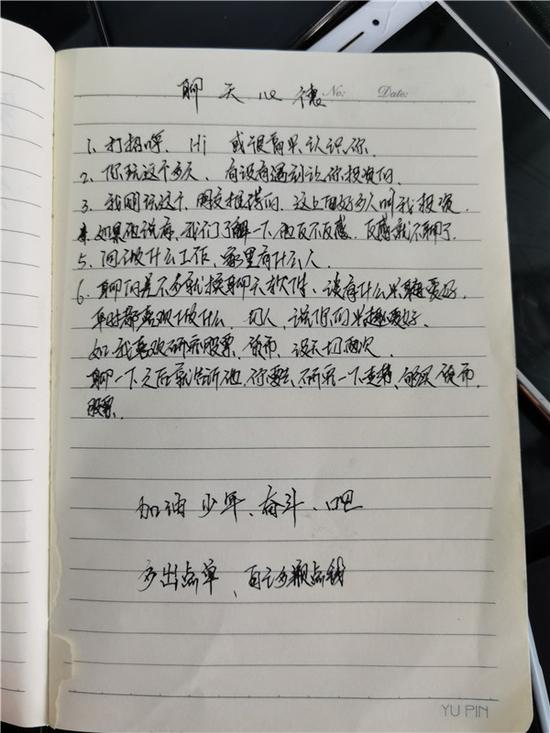 聊天心德
No:
Date:
1、打招呼、Hi 或很高兴认识你
2、你玩这个多久、有没有遇到让你投资的
3、我刚玩这个、网友推荐的、这上面好多人叫我投资
4、如果他说有、我们了解一下、他反不反感、反感就不聊了
5、问做什么工作、家里有什么人
6、聊的差不多就换聊天软件、谈有什么兴趣爱好
平时都喜欢做什么 切入、说你的兴趣爱好
如 我喜欢研究股票、货币 设不切两次
聊一下 之后就告诉他 行要去 研究一下走势、购买 货币
股票
加油 少年、奋斗、吧
多出点单、自己多赚点钱
YU PIN